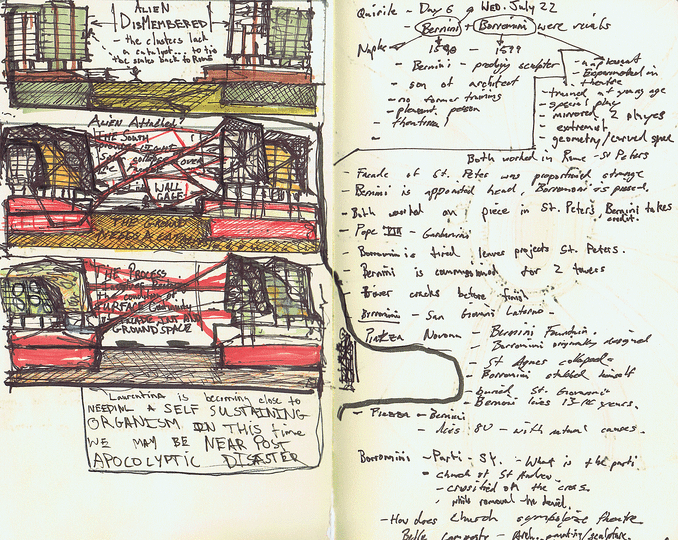 ALIEN
DISMEMBERED
- the clusters lack
a catalyst... to tie
the sides back to Rome
ALIEN Attacked?
THE SOUTH
OVER
WALL
CAGE!
THE GROUND
NEEDS A
THE PROCESS
the condition of
SURFACE Community
GROUND SPACE
Laurentina is becoming close to
NEEDING A SELF SUSTAINING
ORGANISM IN THIS time
WE MAY BE NEAR POST
APOCOLYPTIC DISASTER
Quirile - Day 6 @ WED. July 22
- Bernini + Borromini were rivals
Naples 1598 - 1599
- Bernini - prodigy sculptor
- son of architect
- no former training
- pleasent person
- theatrical
- unpleasent
- Experimented in
theatre
- trained at young age
- special play
- mirrored, 2 players
- extremist
- geometry/curved space
Both worked in Rome - St Peters
- Facade of St. Peter was proportioned strange
- Bernini is appointed head, Borromini is pissed,
- Both worked on piece in St. Peter's, Bernini takes
credit.
- Pope VIII -
- Borromini is tired leaves projects St. Peters.
- Bernini is commissioned for 2 towers
- Tower cracks before finish
- Borromini - San Giovanni Laterano -
- Piazza Novona - Bernini Fountain.
Borromini originally designed
- St Agnes collapsed
- Borromini stabbed himself
- buried St. Giovanni
- Bernini lives 13-15 years.
- Piazza - Bernini
- dies 80 - with natural causes.
Borromini - Parti - St. - What is the parti
- church of St Andrew
- crossified on the cross.
- How does church symbolize theatre